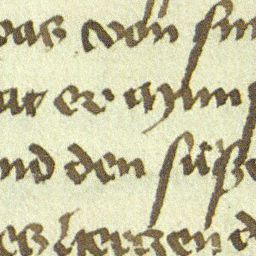 was von sin
at er mym
nd den süße
es herzen d